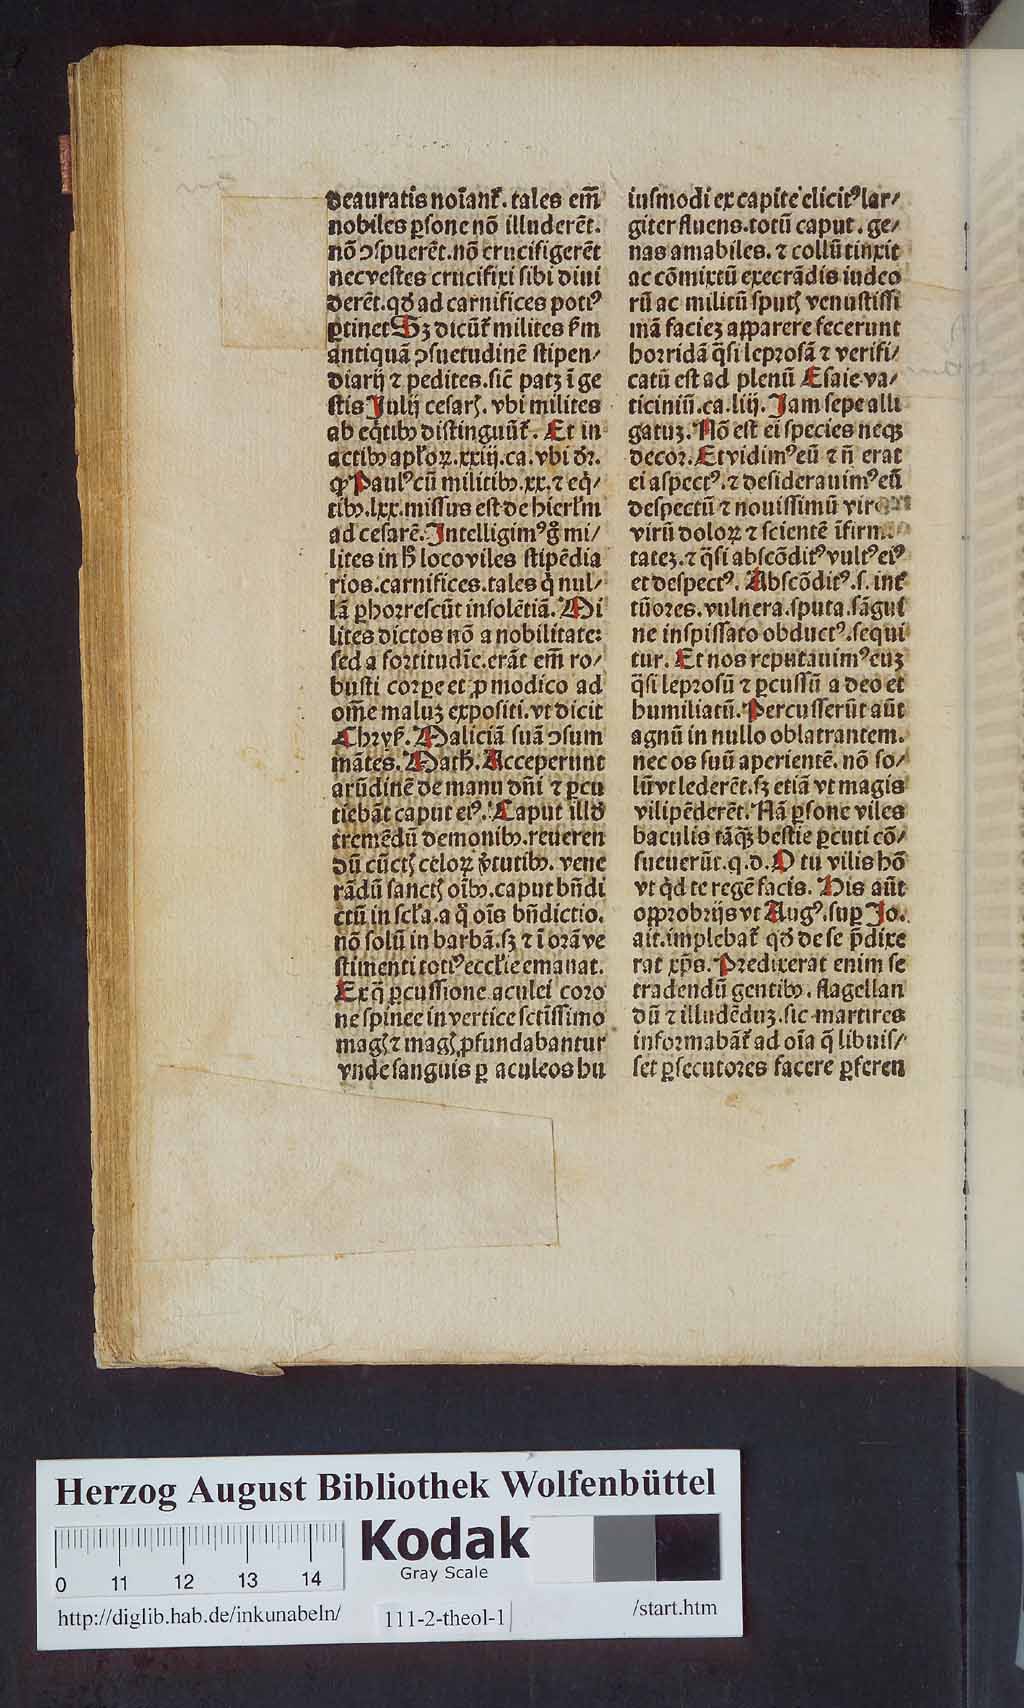 deauratis noīant᷑. tales em̄
nobiles ꝑsone nō illuderēt.
nō ↄspuerēt. nō crucifigerēt
nec vestes crucifixi sibi diui
derēt. qđ ad carnifices potiꝰ
ꝑtinet Sꝫ dicūt᷑ milites ẜm
antiquā ↄsuetudinē stipen/
diarij ⁊ pedites. sic̄ patꝫ ī ge
stis Julij cesarꝭ. vbi milites
ab eq̄tibꝰ distinguūt᷑. Et in
actibꝰ apl'oꝝ. xxiij. ca. vbi dr̄.
ꝙ Paulꝰ cū militibꝰ. xx. ⁊ eq̄/
tibꝰ. lxx. missus est de hierl'm
ad cesarē. Intelligimꝰ g̊ mi/
lites in h̊ loco viles stipēdia
rios. carnifices. tales q̇ nul/
lā ꝑhorrescūt insolētiā. Mi
lites dictos nō a nobilitate:
sed a fortitudīe. erāt em̄ ro/
busti corpe et ꝓ modico ad
om̄e maluꝫ expositi. vt dicit
Chrys̄. Maliciā suā ↄsum
mātes. Math̄. Acceperunt
arūdinē de manu dn̄i ⁊ ꝑcu
tiebāt caput eiꝰ. Caput illđ
tremēdū demonibꝰ. reueren
dū cūctꝭ celoꝝ v̓tutibꝰ. vene
rādū sanctꝭ oībꝰ. caput bn̄di
ctū in scl'a. a q̊ oīs bn̄dictio.
nō solū in barbā. sꝫ ⁊ ī orā ve
stimenti totiꝰ eccl'ie emanat.
Ex q̄ ꝑcussione aculei coro
ne spinee in vertice sctīssimo
magꝭ ⁊ magꝭ ꝓfundabantur
vnde sanguis ꝑ aculeos hu
iusmodi ex capite elicitꝰ lar/
giter fluens. totū caput. ge/
nas amabiles. ⁊ collū tinxit
ac cōmixtū execrādis iudeo
rū ac militū sputꝭ venustissi
mā facieꝫ apparere fecerunt
horridā q̄si leprosā ⁊ verifi/
catū est ad plenū Esaie va/
ticiniū. ca. liij. Jam sepe alli
gatuꝫ. Nō est ei species neqꝫ
decor. Et vidimꝰ eū ⁊ n̄ erat
ei aspectꝰ. ⁊ desiderauimꝰ eū
despectū ⁊ nouissimū
virū doloꝝ ⁊ scientē
tateꝫ. ⁊ q̄si abscōditꝰ vultꝰ eiꝰ
et despectꝰ. Abscōditꝰ. s. int᷑
tūores. vulnera. sputa. sāgui
ne inspissato obductꝰ. sequi
tur. Et nos reputauimꝰ euꝫ
q̄si leprosū ⁊ ꝑcussū a deo et
humiliatū. Percusserūt aūt
agnū in nullo oblatrantem.
nec os suū aperientē. nō so/
lū vt lederēt. sꝫ etiā vt magis
vilipēderēt. Nā ꝑsone viles
baculis tāqꝫ bestie ꝑcuti cō/
sueuerūt. q. d. O tu vilis hō
vt qđ te regē facis. His aūt
opprobrijs vt Augꝰ. suꝑ Jo.
ait. implebat᷑ qđ de se p̄dixe
rat xp̄s. Predixerat enim se
tradendū gentibꝰ. flagellan
dū ⁊ illudēduꝫ. sic martires
informabāt᷑ ad oīa q̄ libuis/
set ꝑsecutores facere ꝑferen
Herzog August Bibliothek Wolfenbüttel
Kodak
Gray Scale
0 11 12 13 14
http://diglib.hab.de/inkunabeln/ 111-2-theol-1 /start.htm